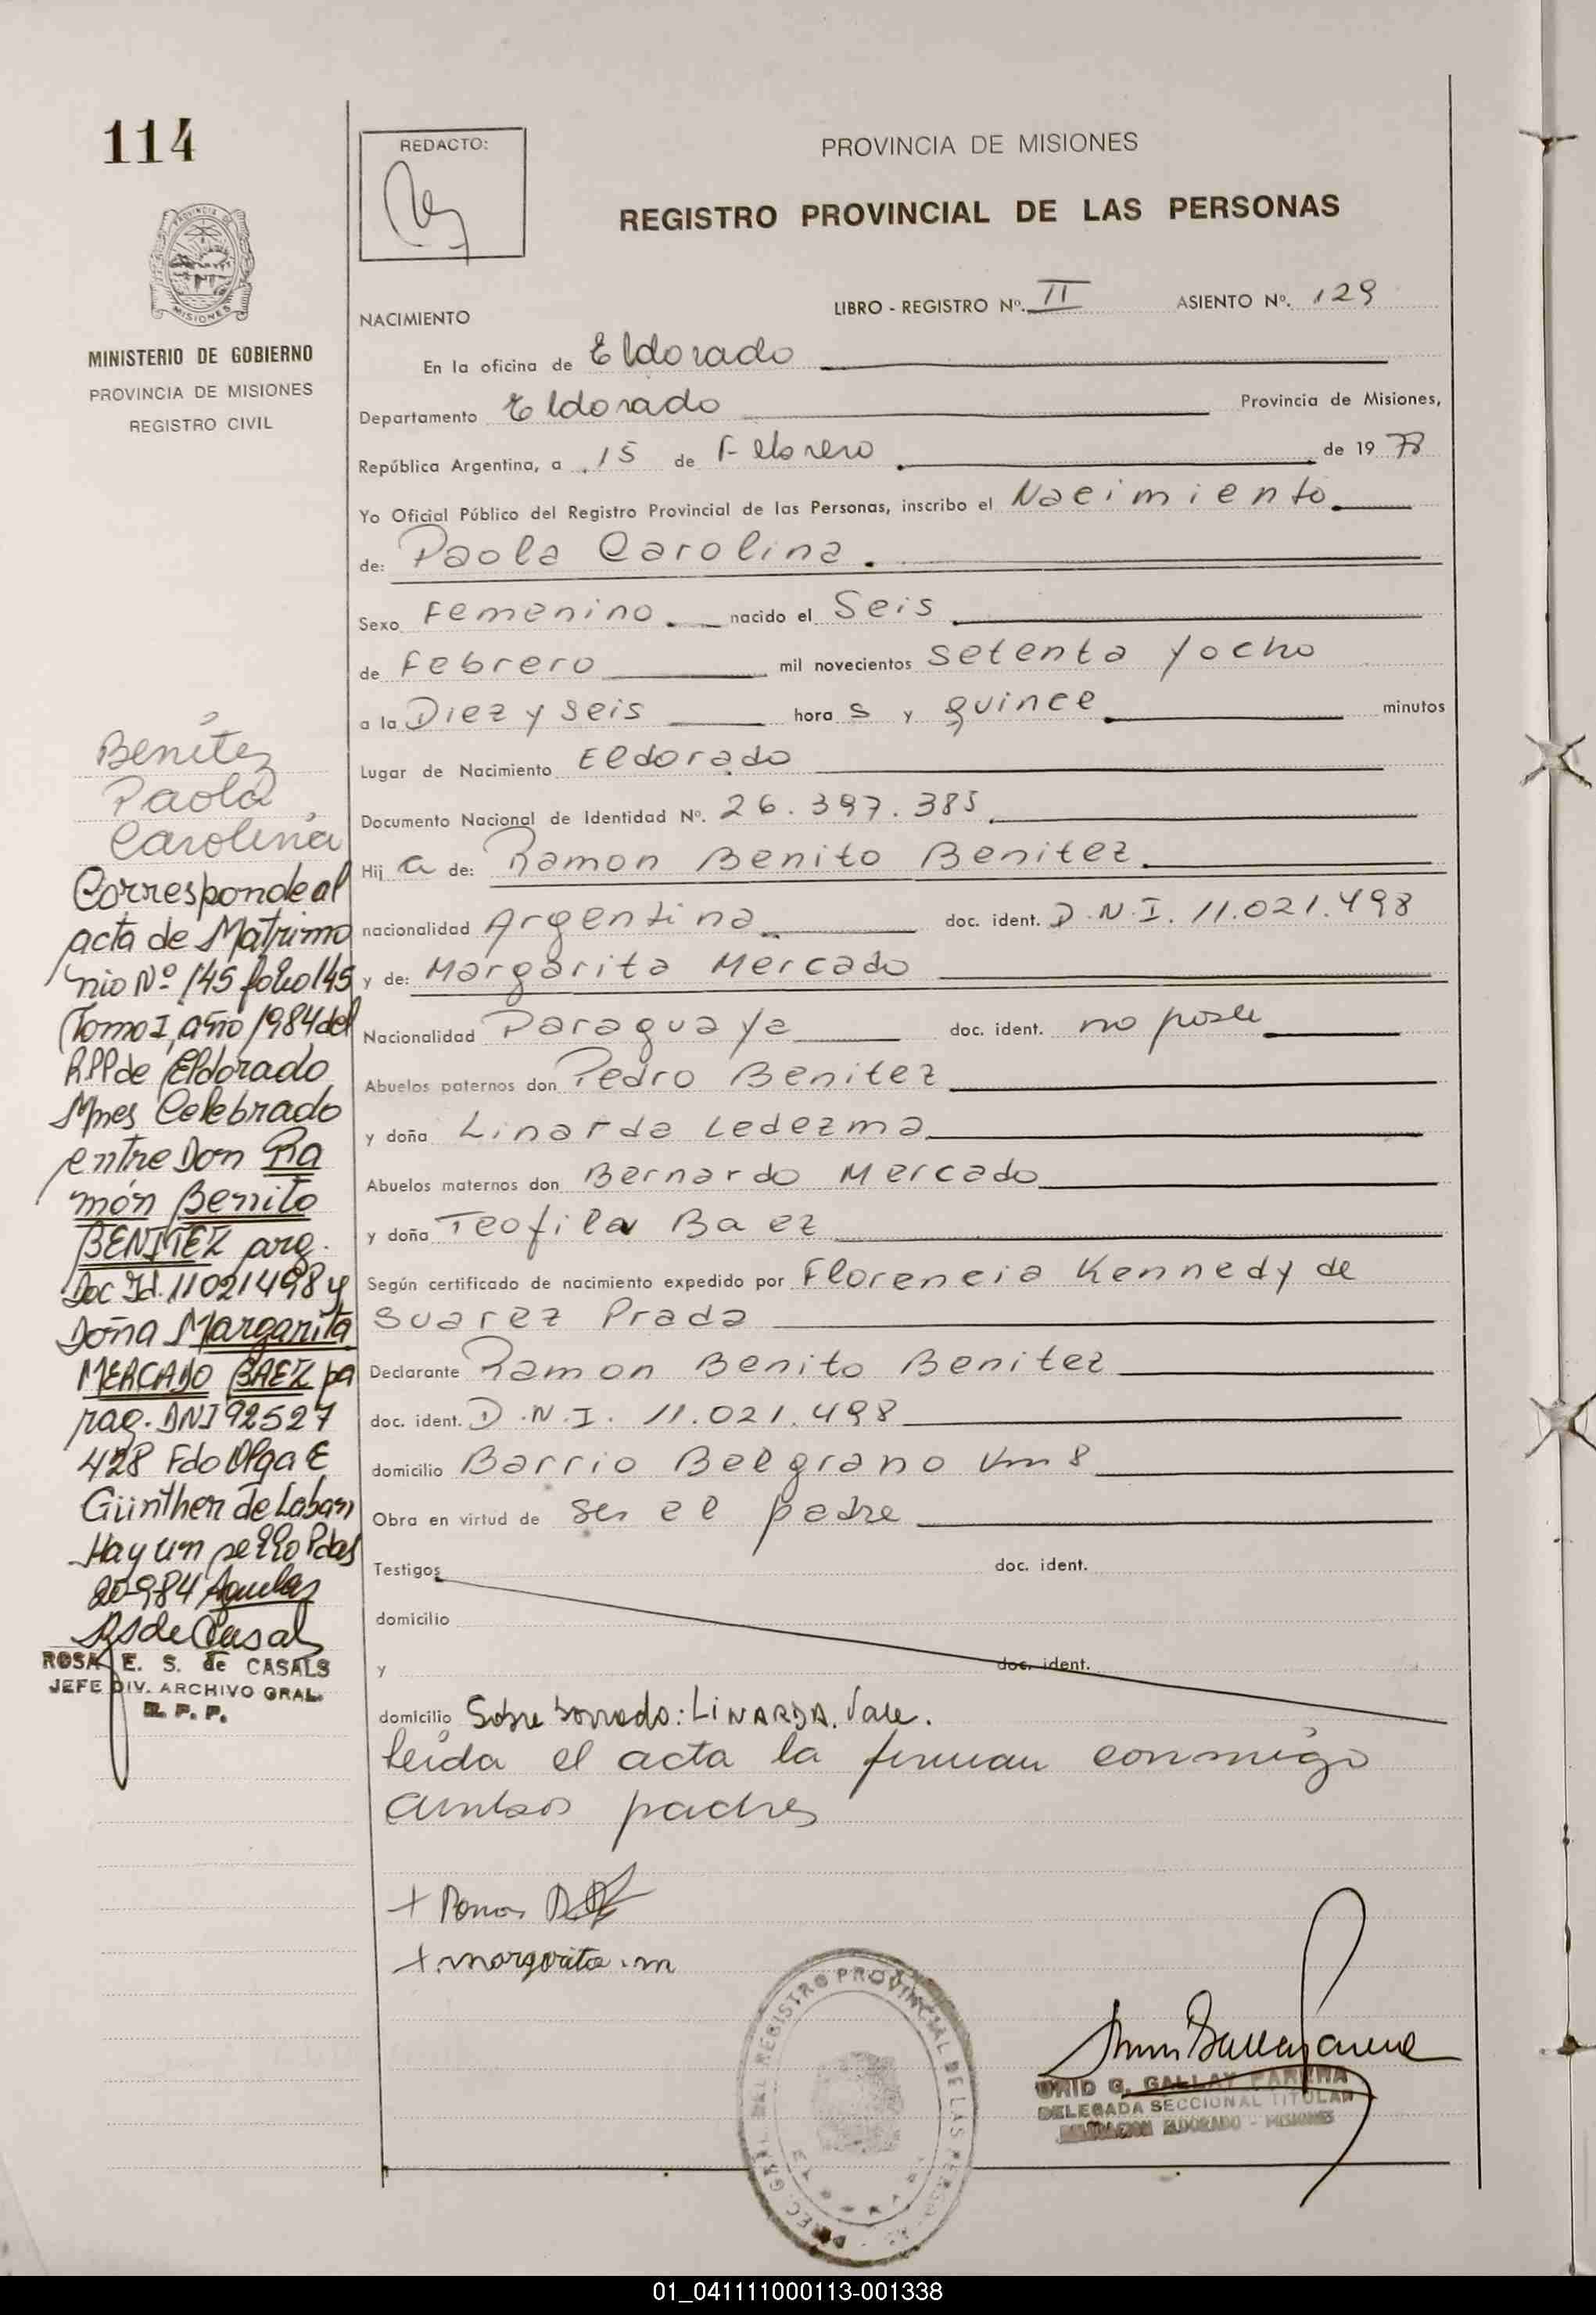 114
REDACTO:
PROVINCIA DE MISIONES
REGISTRO PROVINCIAL DE LAS PERSONAS
PROVINCIA DE
MISIONES
MINISTERIO DE GOBIERNO
PROVINCIA DE MISIONES
REGISTRO CIVIL
LIBRO - REGISTRO Nº. II ASIENTO Nº. 129
NACIMIENTO
En la oficina de Eldorado
Departamento Eldorado Provincia de Misiones,
República Argentina, a 15 de Febrero de 1978
Yo Oficial Público del Registro Provincial de las Personas, inscribo el Nacimiento
de: Paola Carolina.
Sexo Femenino. nacido el Seis
de Febrero mil novecientos setenta y ocho
a la Diez y seis hora s y quince minutos
Lugar de Nacimiento Eldorado
Documento Nacional de Identidad Nº. 26.397.385
Hij a de: Ramon Benito Benitez
nacionalidad Argentina doc. ident. D.N.I. 11.021.498
y de: Margarita Mercado
Nacionalidad Paraguaya doc. ident. no posee
Abuelos paternos don Pedro Benitez
y doña Linarda Ledezma
Abuelos maternos don Bernardo Mercado
y doña Teofila Baez
Según certificado de nacimiento expedido por Florencia Kennedy de
Suarez Prada
Declarante Ramon Benito Benitez
doc. ident. D.N.I. 11.021.498
domicilio Barrio Belgrano Km 8
Obra en virtud de ser el padre
Testigos doc. ident.
domicilio
y doc. ident.
domicilio Sobre borrado: LINARDA. Vale.
Leída el acta la firman conmigo
ambos padres
Benítez
Paola
Carolina
Corresponde al
acta de Matrimo
nio Nº 145 folio 145
Tomo I, año 1984 del
RPP de Eldorado
Mnes Celebrado
entre Don Ra
món Benito
BENITEZ arg.
Doc Id. 11021498 y
Doña Margarita
MERCADO BAEZ pa
rag. DNI 92527
428 Fdo Olga E
Günther de Laban
Hay un sello Pdas
20-9-84
RS de Casals
ROSA E. S. de CASALS
JEFE DIV. ARCHIVO GRAL.
R. P. P.
+ Ramon
+ margarita. m
DIREC. GRAL. DEL REGISTRO PROVINCIAL DE LAS PERSONAS
URID G. GALLAY PARERA
DELEGADA SECCIONAL TITULAR
DELEGACION ELDORADO - MISIONES
01_041111000113-001338